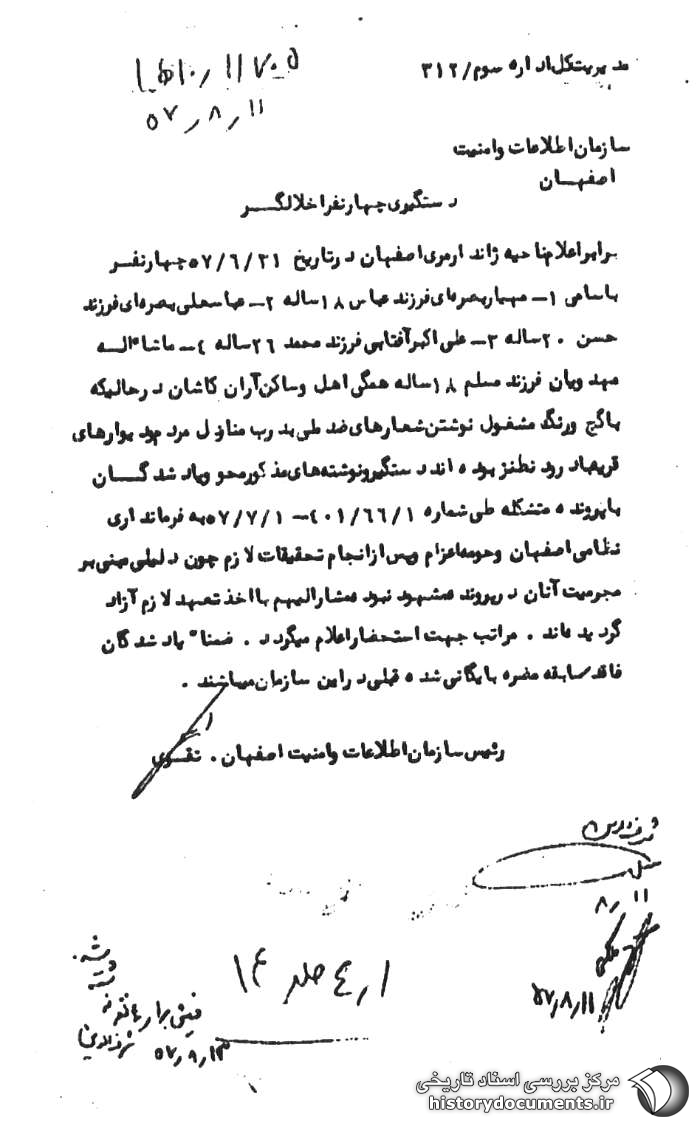 مدیریت کل اداره سوم/۳۱۲
۱۱۷۰۵ /۱۰ه‍ ۱
۵۷/۸/۱۱
سازمان اطلاعات وامنیت
اصفهان
دستگیری چهار نفر اخلالگر
برابر اعلام ناحیه ژاندارمری اصفهان در تاریخ ۵۷/۶/۳۱ چهار نفر
باسامی ۱- مهیار بصره‌ای فرزند عباس ۱۸ ساله ۲- عباسعلی بصره‌ای فرزند
حسن ۲۰ ساله ۳- علی اکبر آفتابی فرزند محمد ۲۶ ساله ۴- ماشاءاله
مهدویان فرزند مسلم ۱۸ ساله همگی اهل وساکن آران کاشان درحالیکه
باگچ ورنگ مشغول نوشتن شعارهای ضد ملی بدرب منازل مردم ودیوارهای
قریه باد رود نطنز بوده اند دستگیر ونوشته‌های مذکور محو ویاد شدگان
باپرونده متشکله طی شماره ۴۰۱/۶۶/۱-۵۷/۷/۱ به فرمانداری
نظامی اصفهان وحومه اعزام وپس از انجام تحقیقات لازم چون دلیلی مبنی بر
مجرمیت آنان در پرونده مشهود نبود مشارالیهم با اخذ تعهد لازم آزاد
گردیده‌اند . مراتب جهت استحضار اعلام میگردد . ضمناً یاد شدگان
فاقد سابقه مضره بایگانی شده قبلی در این سازمان میباشند .
رئیس سازمان اطلاعات وامنیت اصفهان . تقوی
۸/۱۱
۵۷/۸/۱۱
۱ر۴ جلد ۱۴
فیش برای ۴ نفر
۵۷/۸/۱۳
مرکز بررسی اسناد تاریخی
historydocuments.ir